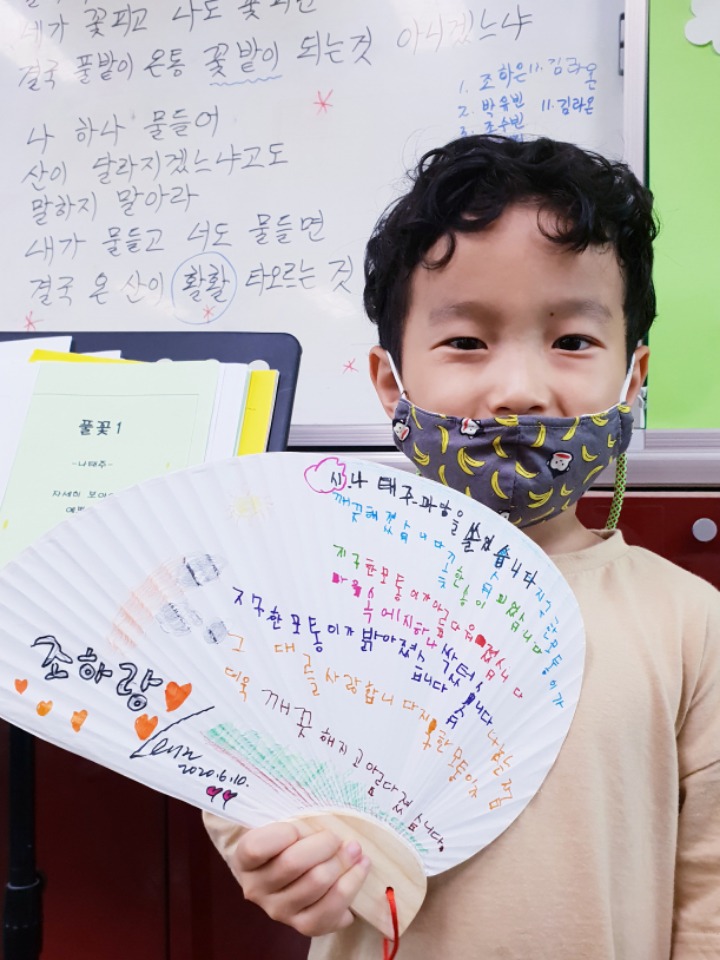 네가 꽃피고 나도 꽃피면
결국 풀밭이 온통 꽃밭이 되는것 아니겠느냐
나 하나 물들어
산이 달라지겠느냐고도
말하지 말아라
내가 물들고 너도 물들면
결국 온 산이 활활 타오르는 것
1. 조하은 11. 김라온
2. 박유빈 11. 김라온
3. 조수빈
풀꽃 1
-나태주-
자세히 보아
예쁘
시.나 태주.마당을 쓸었습니다
깨끗해졌습니다
지구한모퉁이가아름다워졌습니다
마음속에시하나싹텄습니다
지구한모퉁이가밝아졌습니다
그대를사랑합니다지구한모퉁이
더욱 깨끗해지고아름다졌습니다.
조하랑
2020.6.10.